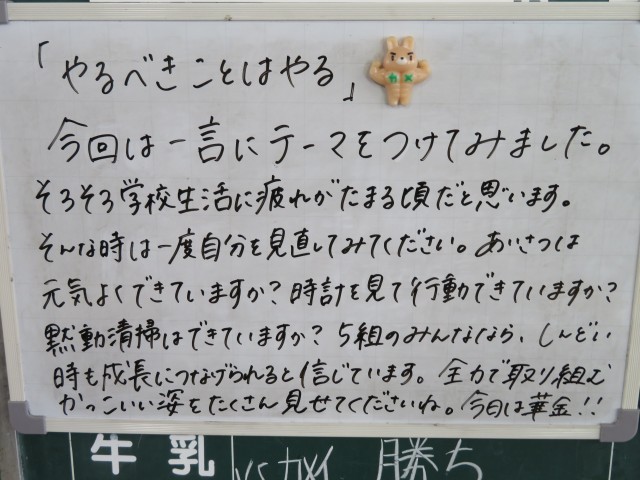 「やるべきことはやる」
今回は一言にテーマをつけてみました。
そろそろ学校生活に疲れがたまる頃だと思います。
そんな時は一度自分を見直してみてください。あいさつは
元気よくできていますか?時計を見て行動できていますか?
黙動清掃はできていますか?5組のみんななら、しんどい
時も成長につなげられると信じています。全力で取り組む
かっこいい姿をたくさん見せてくださいね。今日は華金!!
牛乳
勝ち